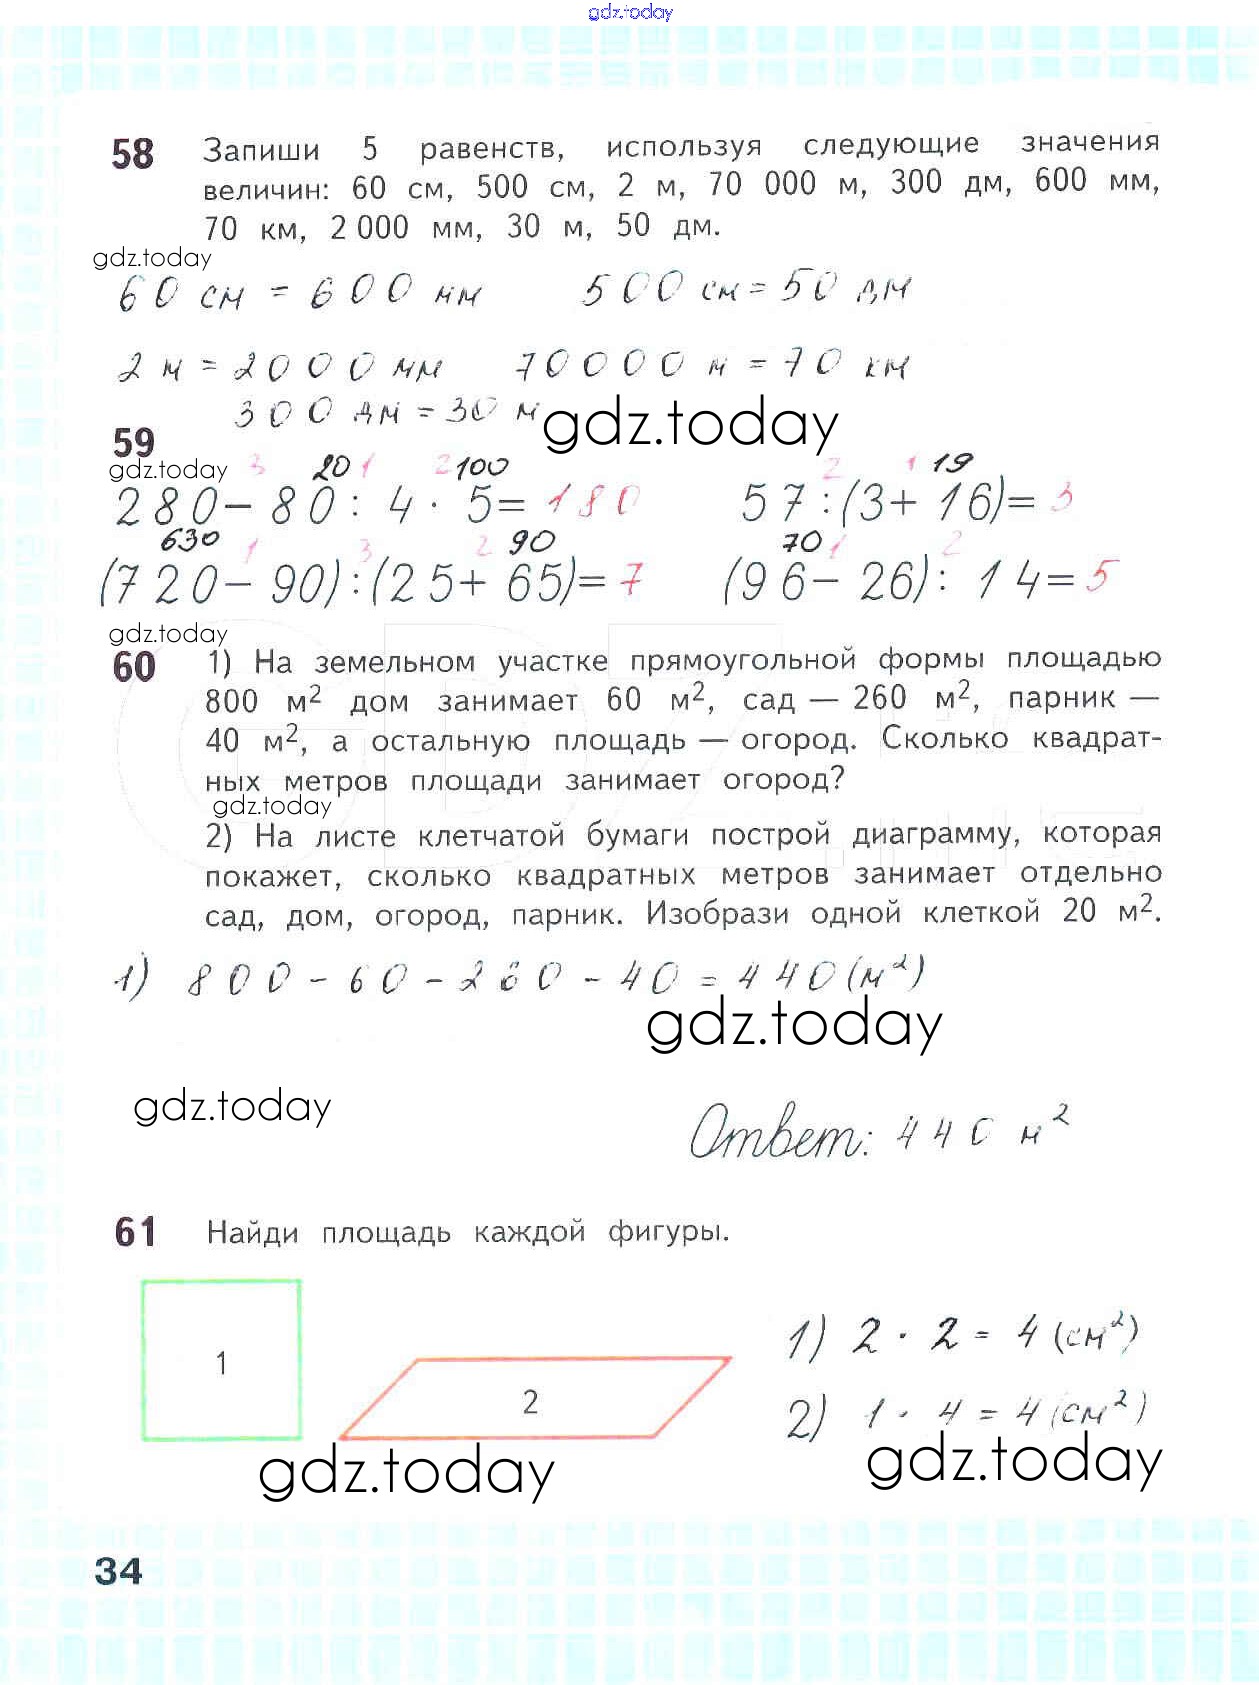 gdz.today
58 Запиши 5 равенств, используя следующие значения
величин: 60 см, 500 см, 2 м, 70 000 м, 300 дм, 600 мм,
70 км, 2 000 мм, 30 м, 50 дм.
gdz.today
60 см = 600 мм 500 см = 50 дм
2 м = 2000 мм 70000 м = 70 км
300 дм = 30 м
gdz.today
59
gdz.today
3 20 1 2 100 2 1 19
280 - 80 : 4 · 5 = 180 57 : (3 + 16) = 3
630 1 3 2 90 70 1 2
(720 - 90) : (25 + 65) = 7 (96 - 26) : 14 = 5
gdz.today
60 1) На земельном участке прямоугольной формы площадью
800 м² дом занимает 60 м², сад — 260 м², парник —
40 м², а остальную площадь — огород. Сколько квадрат-
ных метров площади занимает огород?
gdz.today
2) На листе клетчатой бумаги построй диаграмму, которая
покажет, сколько квадратных метров занимает отдельно
сад, дом, огород, парник. Изобрази одной клеткой 20 м².
1) 800 - 60 - 260 - 40 = 440 (м²)
gdz.today
gdz.today
Ответ: 440 м²
61 Найди площадь каждой фигуры.
1
2
1) 2 · 2 = 4 (см²)
2) 1 · 4 = 4 (см²)
gdz.today
gdz.today
34